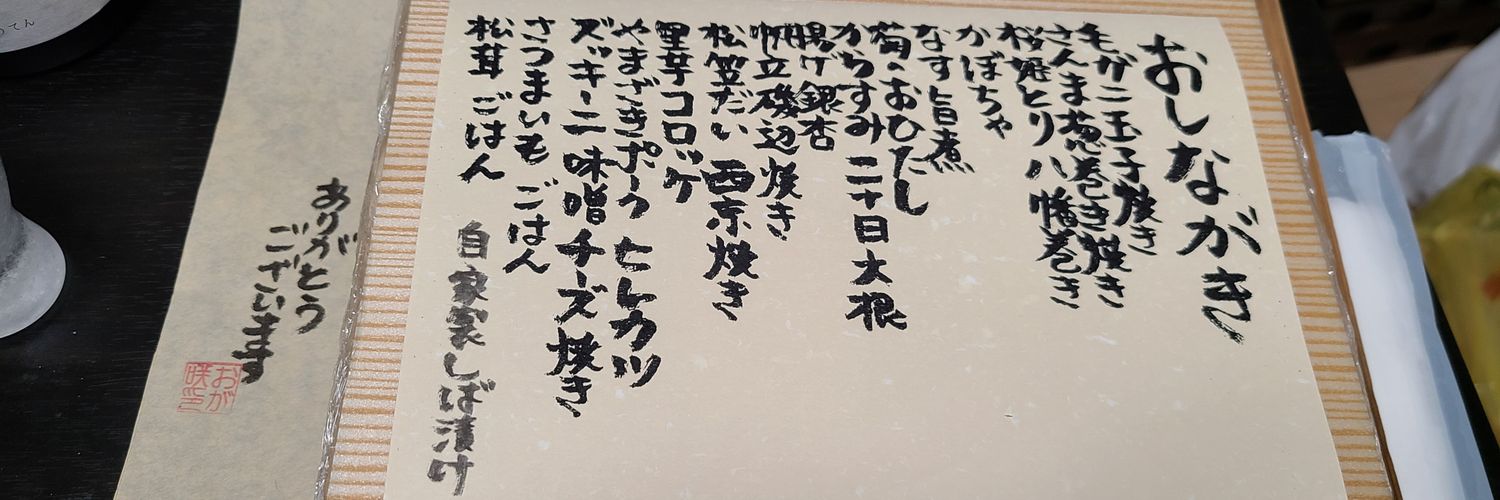 おしながき
毛がに玉子焼き
さんま葱巻き焼き
桜姫とり八幡巻き
かぼちゃ
なす旨煮
菊のおひたし
からすみ 二十日大根
揚げ銀杏
帆立磯辺焼き
松笠だい 西京焼き
里芋コロッケ
やまざきポーク ヒレカツ
ズッキーニ味噌チーズ焼き
さつまいも ごはん
松茸 ごはん
自家製しば漬け
ありがとう
ございます
おが